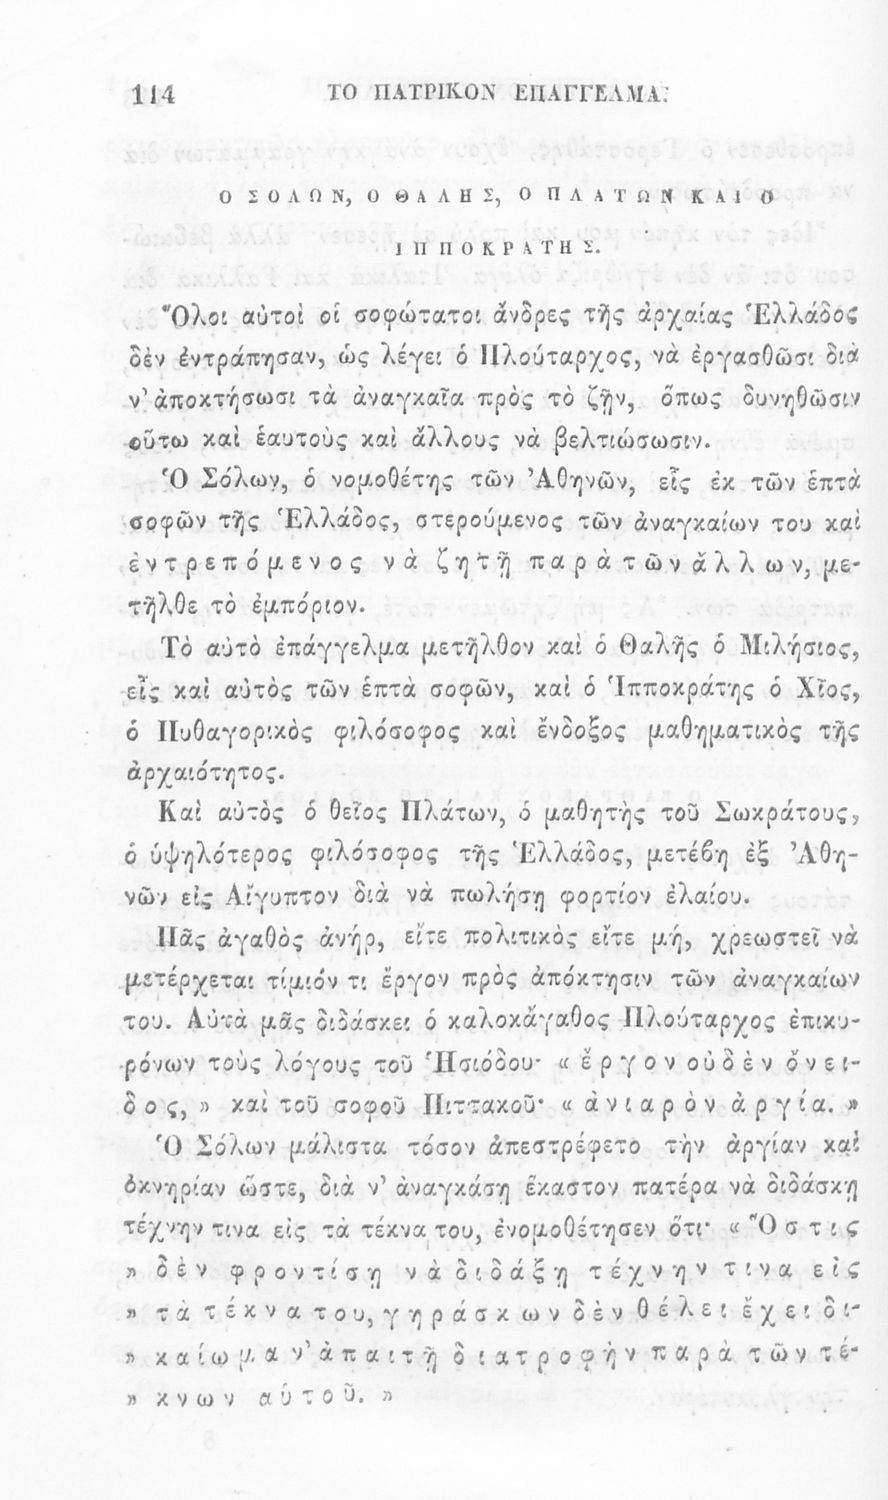 114 ΤΟ ΠΑΤΡΙΚΟΝ ΕΠΑΓΓΕΛΜΑ.
Ο ΣΟΛΩΝ, Ο ΘΑΛΗΣ, Ο ΠΛΑΤΩΝ ΚΑΙ Ο
ΙΠΠΟΚΡΑΤΗΣ.
Ὅλοι αὐτοὶ οἱ σοφώτατοι ἄνδρες τῆς ἀρχαίας Ἑλλάδος
δὲν ἐντράπησαν, ὡς λέγει ὁ Πλούταρχος, νὰ ἐργασθῶσι διὰ
ν' ἀποκτήσωσι τὰ ἀναγκαῖα πρὸς τὸ ζῆν, ὅπως δυνηθῶσιν
οὕτω καὶ ἑαυτοὺς καὶ ἄλλους νὰ βελτιώσωσιν.
Ὁ Σόλων, ὁ νομοθέτης τῶν Ἀθηνῶν, εἷς ἐκ τῶν ἑπτὰ
σοφῶν τῆς Ἑλλάδος, στερούμενος τῶν ἀναγκαίων του καὶ
ἐντρεπόμενος νὰ ζητῇ παρὰ τῶν ἄλλων, με-
τῆλθε τὸ ἐμπόριον.
Τὸ αὐτὸ ἐπάγγελμα μετῆλθον καὶ ὁ Θαλῆς ὁ Μιλήσιος,
εἷς καὶ αὐτὸς τῶν ἑπτὰ σοφῶν, καὶ ὁ Ἱπποκράτης ὁ Χῖος,
ὁ Πυθαγορικὸς φιλόσοφος καὶ ἔνδοξος μαθηματικὸς τῆς
ἀρχαιότητος.
Καὶ αὐτὸς ὁ θεῖος Πλάτων, ὁ μαθητὴς τοῦ Σωκράτους,
ὁ ὑψηλότερος φιλόσοφος τῆς Ἑλλάδος, μετέβη ἐξ Ἀθη-
νῶν εἰς Αἴγυπτον διὰ νὰ πωλήσῃ φορτίον ἐλαίου.
Πᾶς ἀγαθὸς ἀνήρ, εἴτε πολιτικὸς εἴτε μή, χρεωστεῖ νὰ
μετέρχεται τίμιόν τι ἔργον πρὸς ἀπόκτησιν τῶν ἀναγκαίων
του. Αὐτὰ μᾶς διδάσκει ὁ καλοκἄγαθος Πλούταρχος ἐπικυ-
ρόνων τοὺς λόγους τοῦ Ἡσιόδου· « ἔργον οὐδὲν ὄνει-
δος, » καὶ τοῦ σοφοῦ Πιττακοῦ· « ἀνιαρὸν ἀργία. »
Ὁ Σόλων μάλιστα τόσον ἀπεστρέφετο τὴν ἀργίαν καὶ
ὀκνηρίαν ὥστε, διὰ ν' ἀναγκάσῃ ἕκαστον πατέρα νὰ διδάσκῃ
τέχνην τινα εἰς τὰ τέκνα του, ἐνομοθέτησεν ὅτι· « Ὅστις
» δὲν φροντίσῃ νὰ διδάξῃ τέχνην τινα εἰς
» τὰ τέκνα του, γηράσκων δὲν θέλει ἔχει δι-
» καίωμα ν' ἀπαιτῇ διατροφὴν παρὰ τῶν τέ-
» κνων αὑτοῦ. »